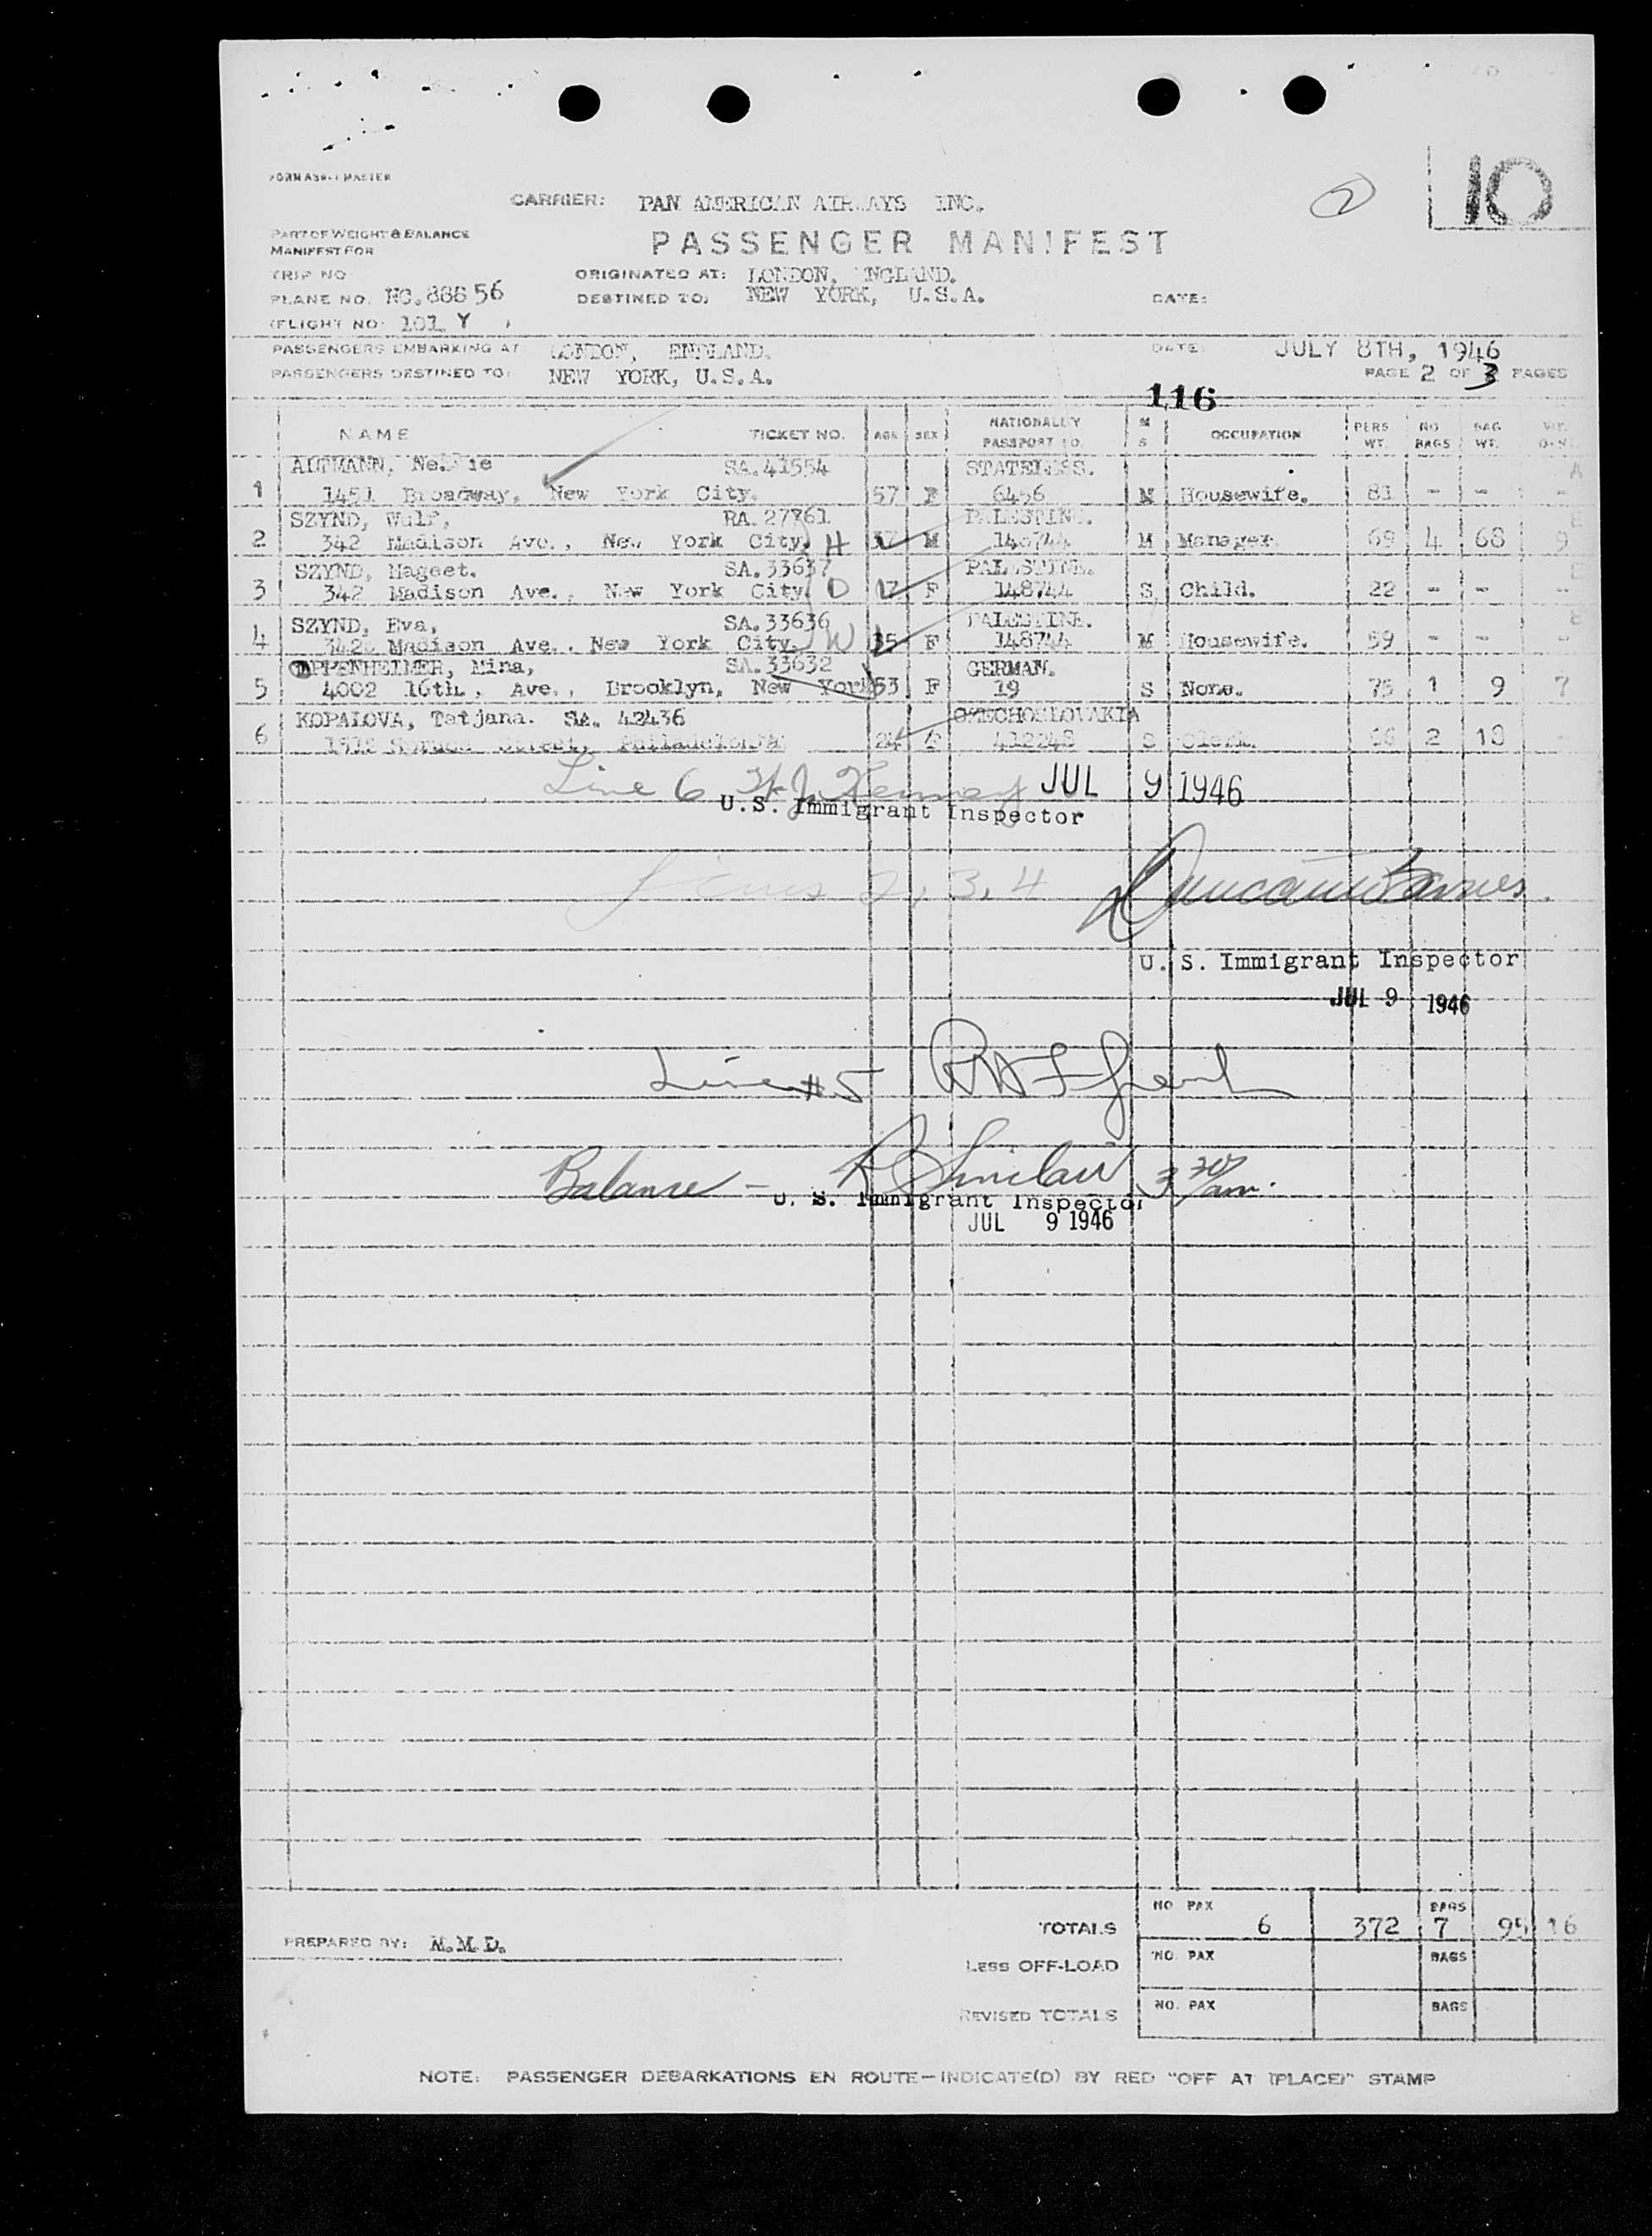 10
2
CARRIER: PAN AMERICAN AIRWAYS INC.
PART OF WEIGHT & BALANCE
MANIFEST FOR
PASSENGER MANIFEST
TRIP NO
ORIGINATED AT: LONDON, ENGLAND.
PLANE NO. NC.88856
DESTINED TO: NEW YORK, U.S.A.
DATE:
(FLIGHT NO. 101 Y )
PASSENGERS EMBARKING AT LONDON, ENGLAND.
DATE: JULY 8TH, 1946
PASSENGERS DESTINED TO: NEW YORK, U.S.A.
PAGE 2 OF 3 PAGES
116
NAME TICKET NO. AGE SEX NATIONALITY PASSPORT NO. M S OCCUPATION PERS WT. NO BAGS BAG WT.
ALTMANN, SA.41554 STATELESS.
1 1451 Broadway, New York City. 57 F 6456 M Housewife. 81 - - -
SZYND, Wulf, RA.27861 PALESTINE.
2 342 Madison Ave., New York City. H 37 M M Manager 69 4 68 9
SZYND, Mageet. SA.33637 PALESTINE.
3 342 Madison Ave., New York City. D 12 F 148744 S Child. 22 - - -
SZYND, Eva, SA.33636 PALESTINE.
4 342 Madison Ave., New York City. W 35 F 148744 M Housewife. 59 - - -
OPPENHEIMER, Mina, SA.33632 GERMAN.
5 4002 16th., Ave., Brooklyn, New York 53 F 19 S None. 75 1 9 7
KOPALOVA, Tatjana. SA. 42436 CZECHOSLOVAKIA
6 Street, Philadelphia 24 F 412248 S Clerk. 66 2 18 -
Line 6 W.J. Kenney JUL 9 1946
U.S. Immigrant Inspector
Lines 2, 3, 4 Duncan Barnes.
U. S. Immigrant Inspector
JUL 9 1946
Line #5
Balance - R Sinclair 3 30/am.
U. S. Immigrant Inspector
JUL 9 1946
TOTALS NO PAX 6 372 BAGS 7 95 16
PREPARED BY: M.M.D.
LESS OFF-LOAD NO. PAX BAGS
REVISED TOTALS NO. PAX BAGS
NOTE: PASSENGER DEBARKATIONS EN ROUTE—INDICATE(D) BY RED "OFF AT (PLACE)" STAMP